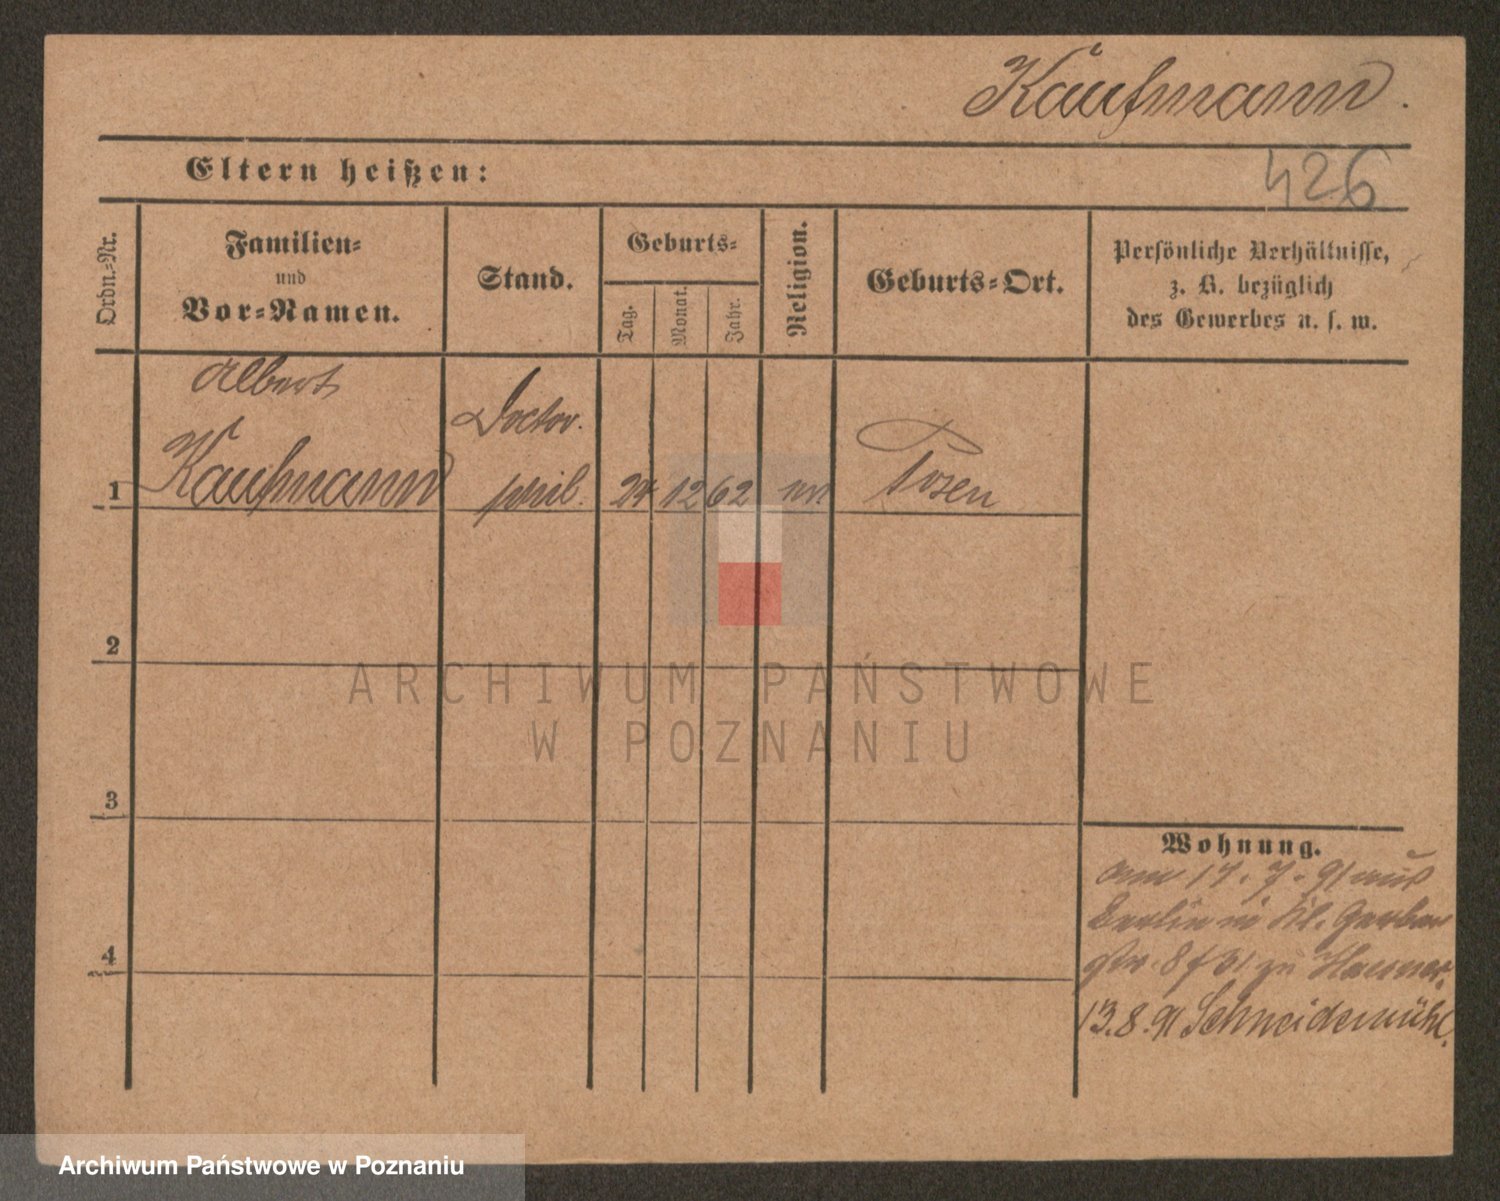 Kaufmann.
Eltern heißen:
426
Ordn.-Nr.
Familien-
und
Vor-Namen.
Stand.
Geburts-
Tag.
Monat.
Jahr.
Religion.
Geburts-Ort.
Persönliche Verhältnisse,
z. B. bezüglich
des Gewerbes u. s. w.
Albert
Doctor.
1 Kaufmann phil. 24 12 62 Posen
2
ARCHIWUM PAŃSTWOWE
W POZNANIU
3
Wohnung.
am 17. 7. 91 aus
Berlin in Kl. Gerber
str. 8 f 31 zu
4
13.8.91 Schneidemühl.
Archiwum Państwowe w Poznaniu